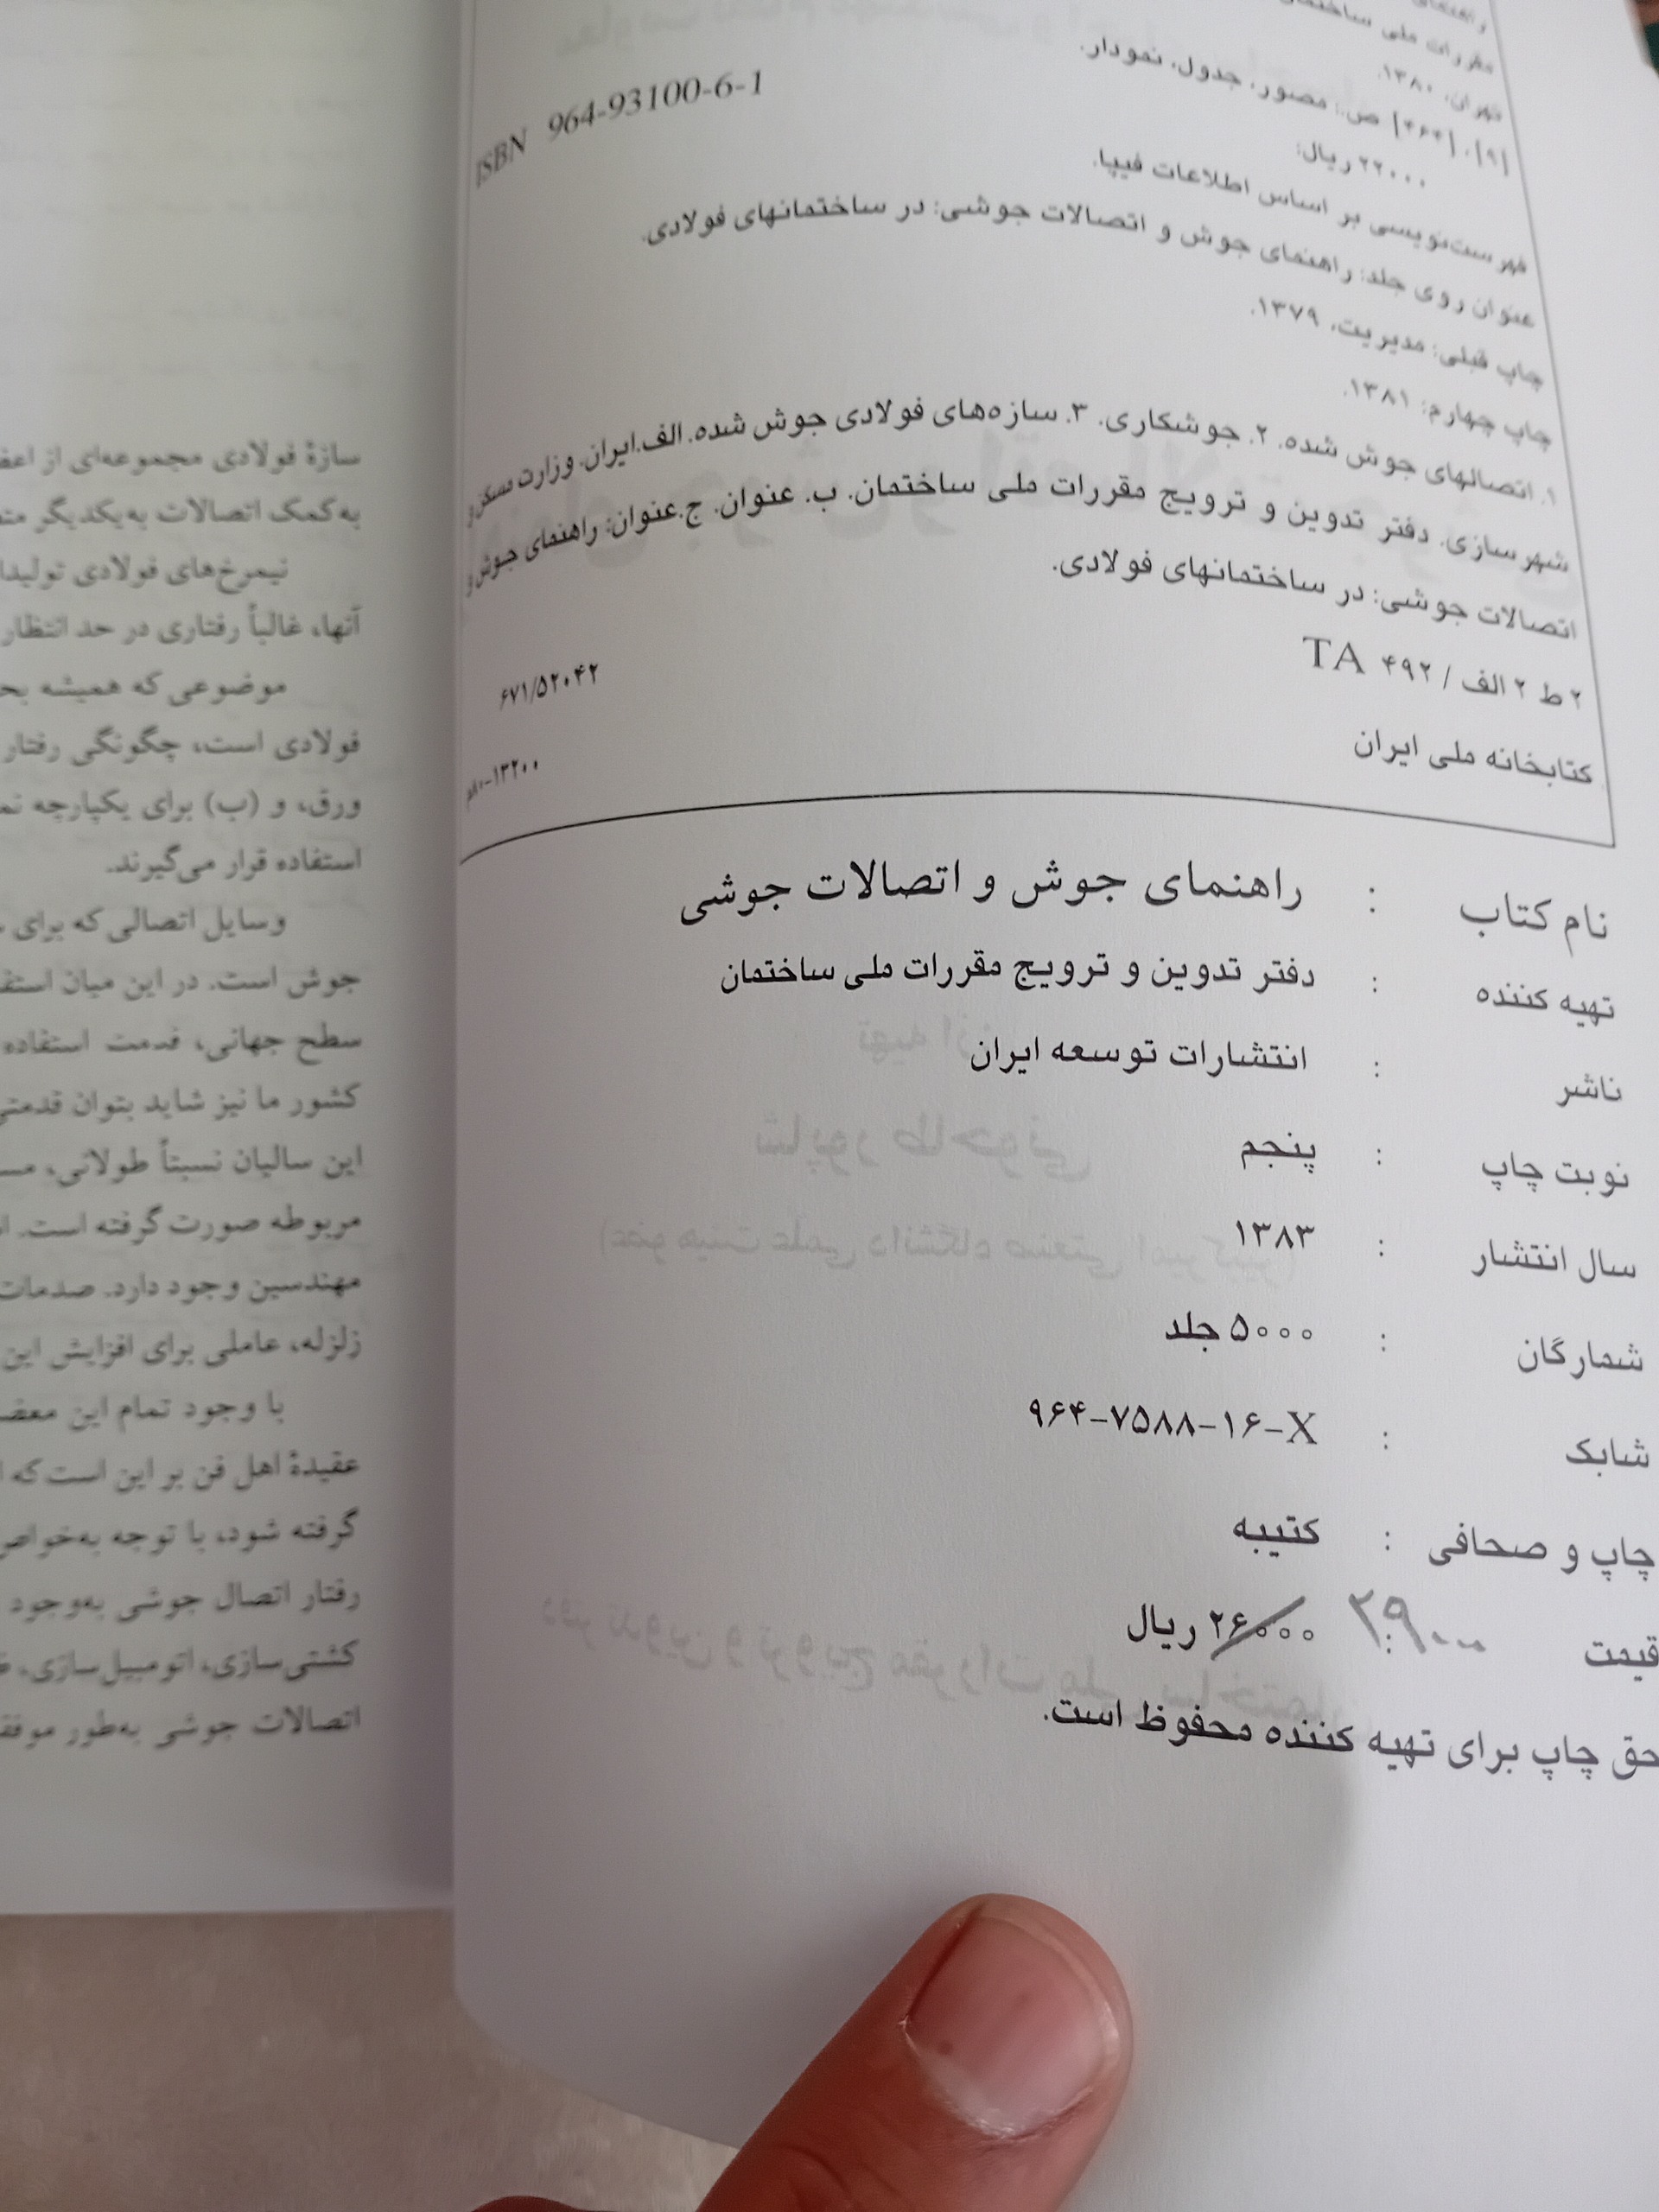 راهنمای
مقررات ملی ساختمان
تهران، ۱۳۸۰.
[۹]، [۴۶۴] ص.: مصور، جدول، نمودار.
ISBN 964-93100-6-1
۲۲۰۰۰ ریال:
فهرست‌نویسی بر اساس اطلاعات فیپا.
عنوان روی جلد: راهنمای جوش و اتصالات جوشی: در ساختمانهای فولادی.
چاپ قبلی: مدیریت، ۱۳۷۹.
چاپ چهارم: ۱۳۸۱.
۱. اتصالهای جوش شده. ۲. جوشکاری. ۳. سازه‌های فولادی جوش شده. الف.ایران. وزارت مسکن و
شهرسازی. دفتر تدوین و ترویج مقررات ملی ساختمان. ب. عنوان. ج.عنوان: راهنمای جوش و
اتصالات جوشی: در ساختمانهای فولادی.
۲ ط ۲ الف / ۴۹۲ TA
۶۷۱/۵۲۰۴۲
کتابخانه ملی ایران
م۸۰-۱۳۲۰۰
نام کتاب : راهنمای جوش و اتصالات جوشی
تهیه کننده : دفتر تدوین و ترویج مقررات ملی ساختمان
ناشر : انتشارات توسعه ایران
نوبت چاپ : پنجم
سال انتشار : ۱۳۸۳
شمارگان : ۵۰۰۰ جلد
شابک : ۹۶۴-۷۵۸۸-۱۶-X
چاپ و صحافی : کتیبه
قیمت : ۲۹۰۰۰ ۲۶۰۰۰ ریال
حق چاپ برای تهیه کننده محفوظ است.
سازهٔ فولادی مجموعه‌ای از
به‌کمک اتصالات به‌یکدیگر
نیمرخ‌های فولادی
آنها، غالباً رفتاری در حد انتظار
موضوعی که همیشه
فولادی است، چگونگی رفتار
ورق، و (ب) برای یکپارچه
استفاده قرار می‌گیرند.
وسایل اتصالی که برای
جوش است. در این میان
سطح جهانی، قدمت استفاده
کشور ما نیز شاید بتوان
این سالیان نسبتاً طولانی،
مربوطه صورت گرفته است.
مهندسین وجود دارد. صدمات
زلزله، عاملی برای افزایش این
با وجود تمام این
عقیدهٔ اهل فن بر این است که
گرفته شود، با توجه
رفتار اتصال جوشی به‌وجود
کشتی‌سازی، اتومبیل‌سازی،
اتصالات جوشی به‌طور